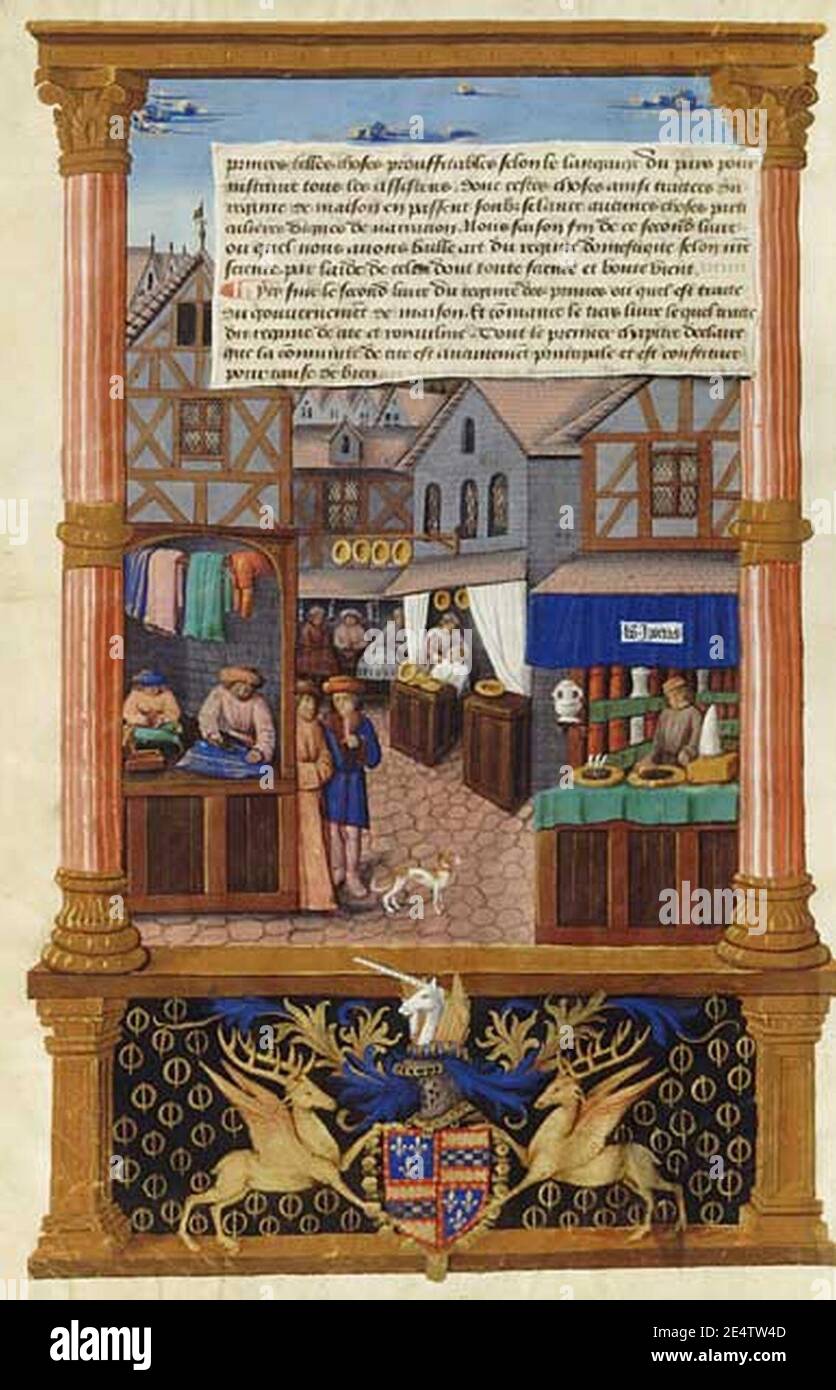 princes telles choses prouffitables selon le langaige du pays pour
instruire tous les assistens. Donc cestes choses ainsi traictees du
regime de maison en passent soubz silance aucunes choses parti
culieres dignes de narration. Nous faison fin de ce second livre
ou quel nous avons baille art du regime domestique selon nre
science par laide de celuy dont toute science et bonte vient
Cy fine le second livre du regime des princes ou quel est traicte
du gouvernement de maison. Et comance le tiers livre le quel traicte
du regime de cite et royaulme. Dont le premier chapitre declaire
que la comunite de cite est aucunemet principale et est constituee
pour cause de bien
alamy
Image ID: 2E4TW4D
www.alamy.com